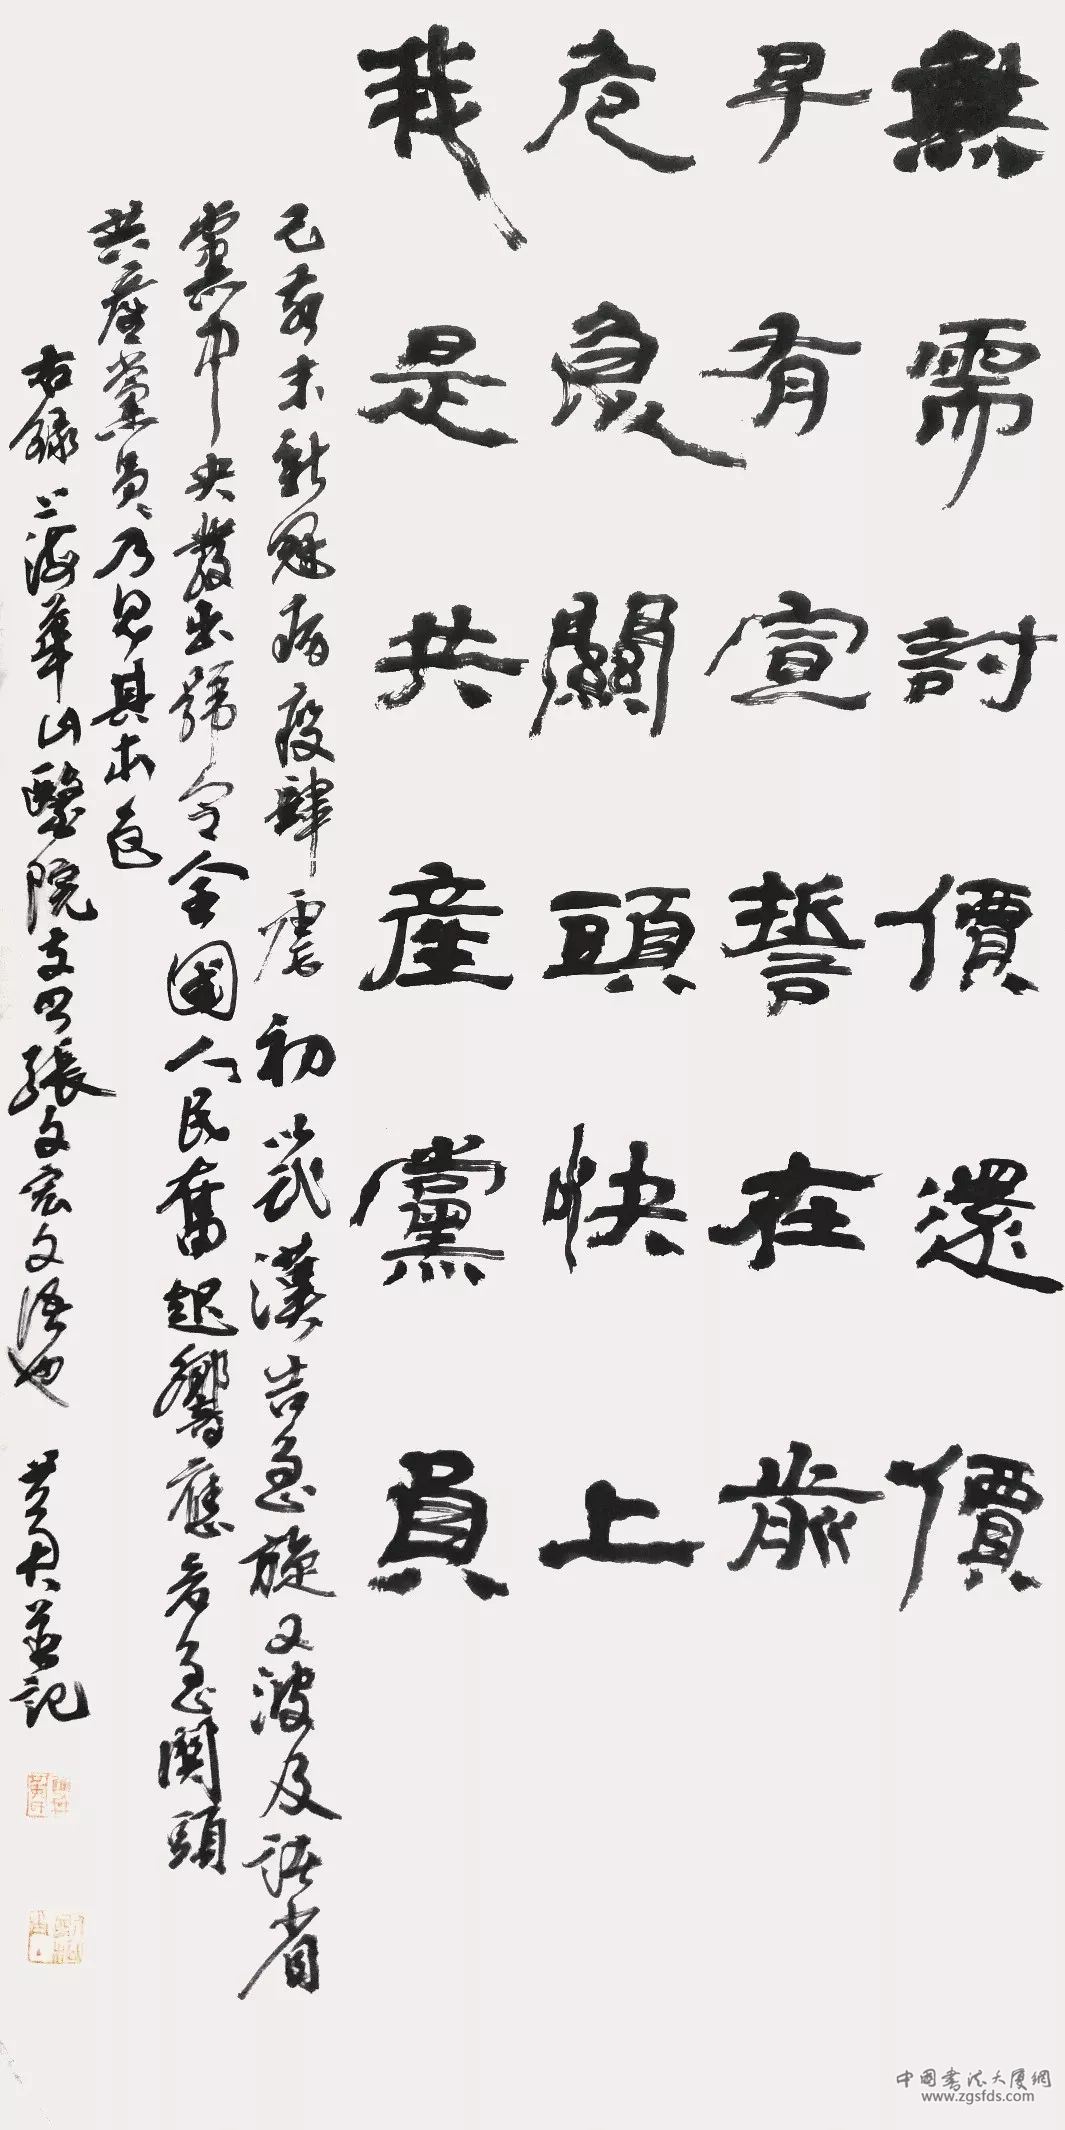 無需討價還價
早有宣誓在前
危急關頭快上
我是共產黨員
己亥末新冠病疫肆虐初以武漢告急旋又波及諸省
黨中央發出號令全國人民奮起響應危急關頭
共產黨員乃見其本色
右錄上海華山醫院支書張文宏文語也
并記
中国书法大厦網
www.zgsfds.com